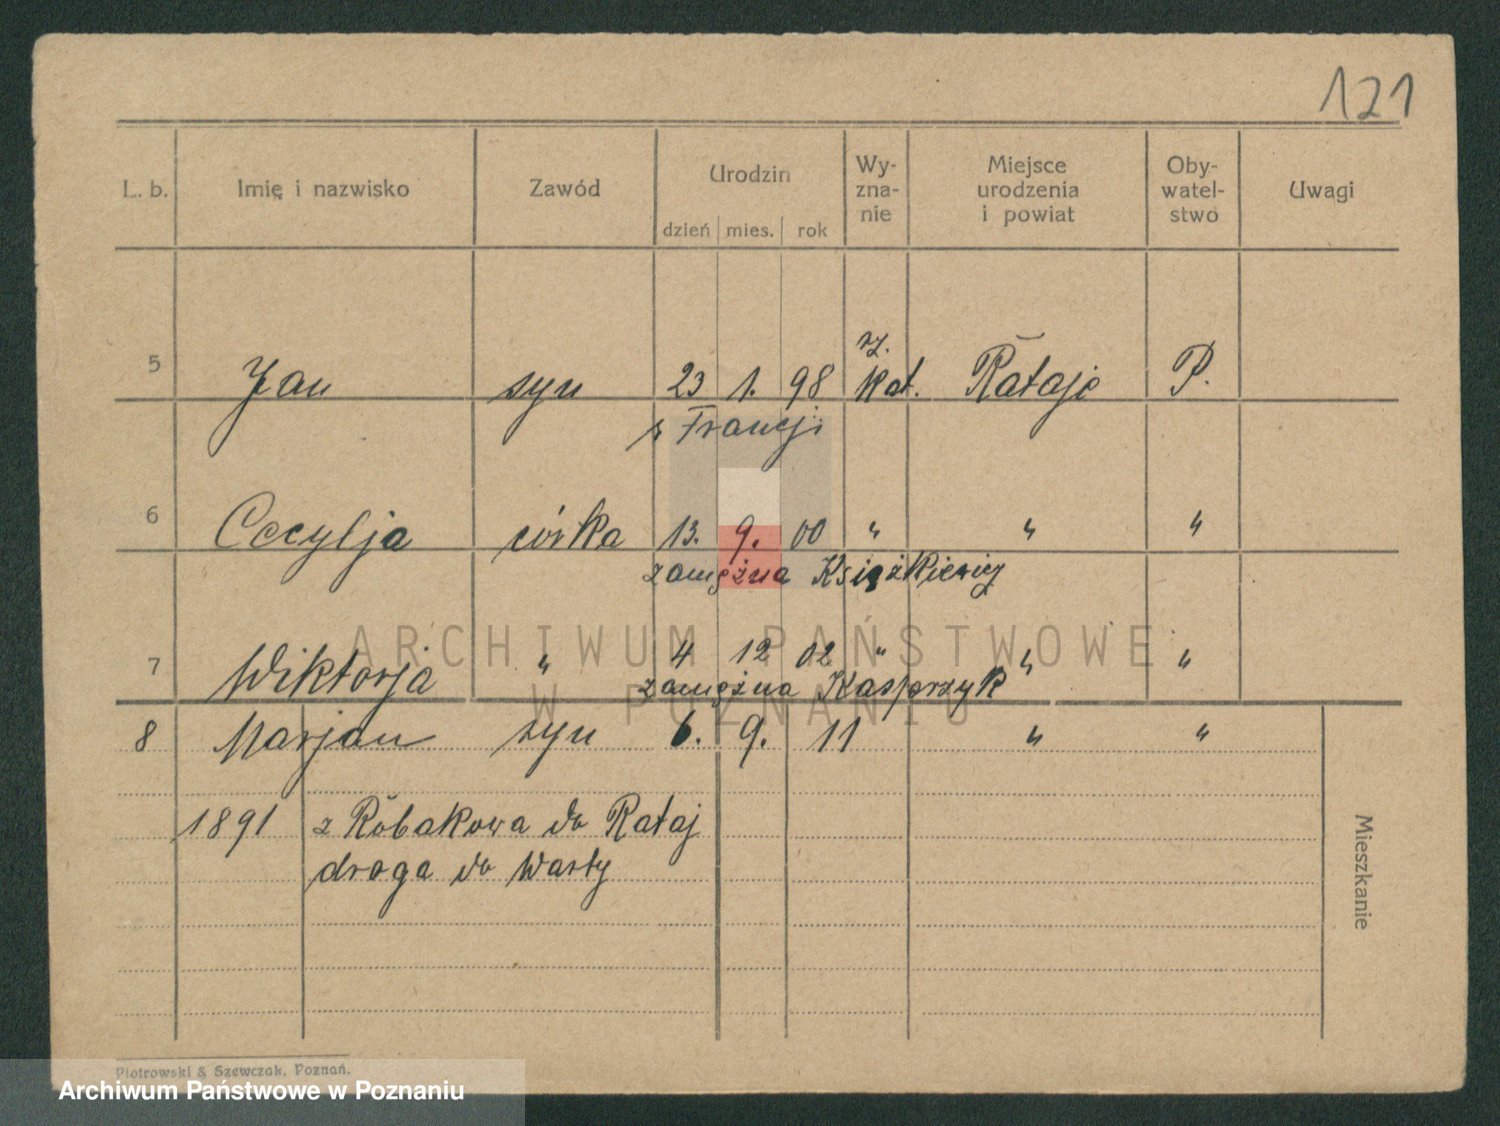 121
L. b. Imię i nazwisko Zawód Urodzin Wy-zna-nie Miejsce urodzenia i powiat Oby-watel-stwo Uwagi
dzień mies. rok
rz.
5 Jan syn 23 1. 98 kat. Rataje P.
z Francji
6 Cecylja córka 13. 9. 00 " " "
zamężna Książkiewicz
7 Wiktorja " 4 12 02 " " "
zamężna Kasperzyk
8 Marjan syn 6. 9. 11 " "
1891 z Robakowa do Rataj
droga do Warty
Mieszkanie
Piotrowski & Szewczak, Poznań.
ARCHIWUM PAŃSTWOWE
W POZNANIU
Archiwum Państwowe w Poznaniu